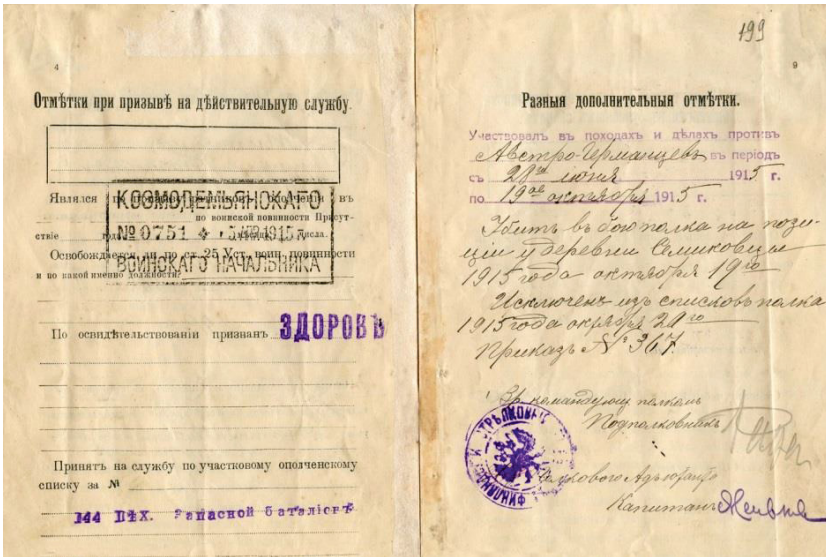 4
Отмѣтки при призывѣ на дѣйствительную службу.
КОСМОДЕМЬЯНСКАГО
Являлся по призыву ратниковъ ополченія въ
по воинской повинности Присут-
№ 0751 5 АПР 1915
ствіе года мѣсяца числа.
Освобождается ли по ст. 25 Уст. воин. повинности
ВОИНСКАГО НАЧАЛЬНИКА
и по какой именно должности?
По освидѣтельствованіи признанъ ЗДОРОВЪ
Принятъ на службу по участковому ополченскому
списку за №
144 ПѢХ. Запасной баталіонъ
199
9
Разныя дополнительныя отмѣтки.
Участвовалъ въ походахъ и дѣлахъ противъ
Австро-Германцевъ въ періодъ
съ 28го іюня 1915 г.
по 19ое октября 1915 г.
Убитъ въ бою полка на пози-
ціи у деревни Семиковцы
1915 года октября 19го
Исключенъ изъ списковъ полка
1915 года октября 20го
Приказъ № 367.
командующ полкомъ
Подполковникъ
Полкового Адъютанта
Капитанъ